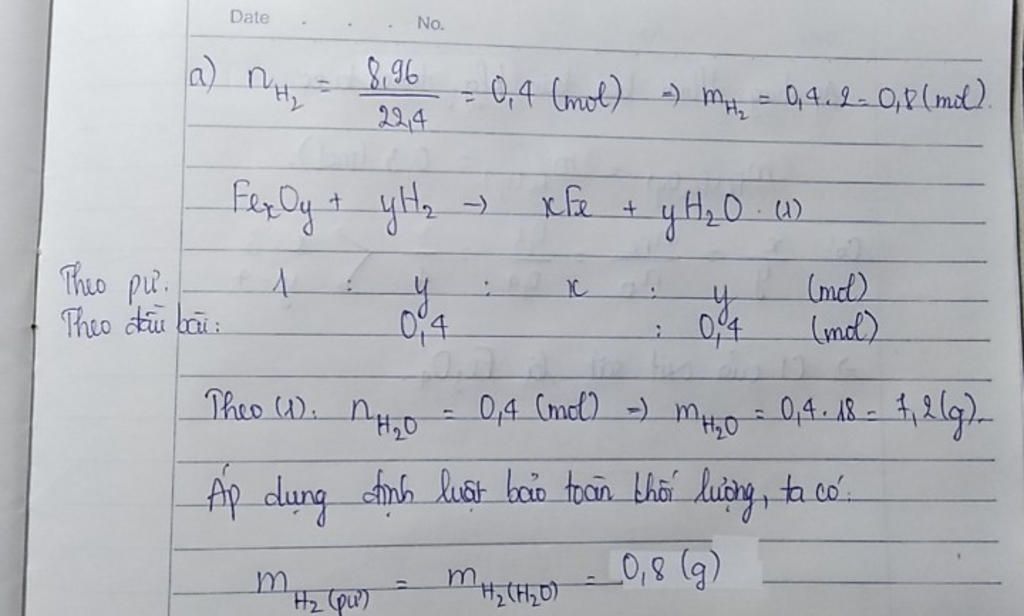 Date . . . No.
a) n_{H_2} = \frac{8,96}{22,4} = 0,4 (mol) => m_{H_2} = 0,4.2 = 0,8 (mol).
Fe_xO_y + yH_2 -> xFe + yH_2O. (1)
Theo pư: 1 : y : x : y (mol)
Theo đầu bài: 0,4 : 0,4 (mol)
Theo (1): n_{H_2O} = 0,4 (mol) => m_{H_2O} = 0,4.18 = 7,2 (g).
Áp dụng định luật bảo toàn khối lượng, ta có:
m_{H_2 (pư)} = m_{H_2 (H_2O)} = 0,8 (g)